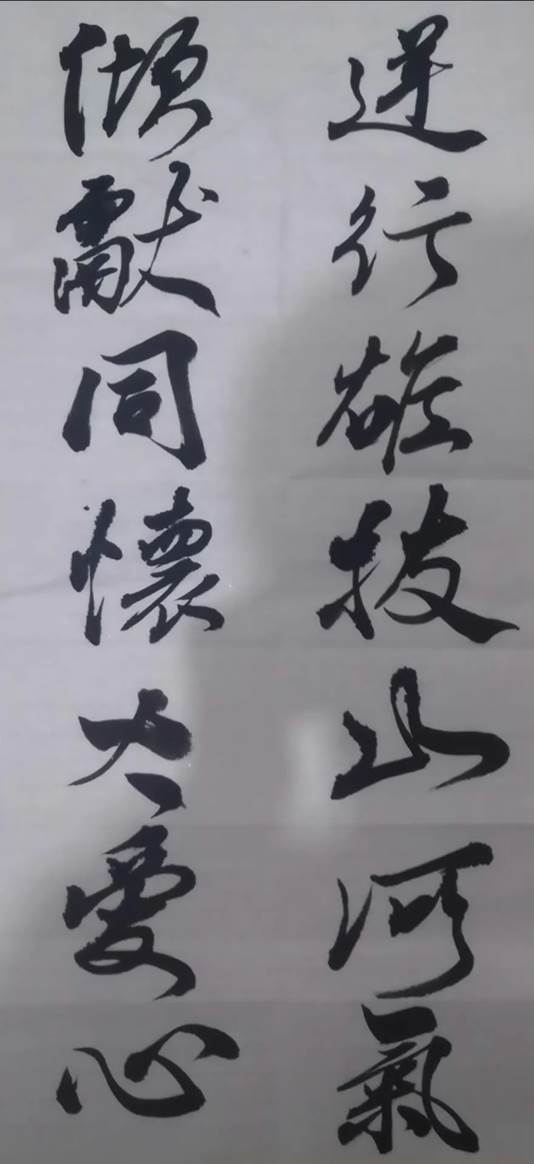 逆行雄拔山河氣
傾獻同懷大愛心